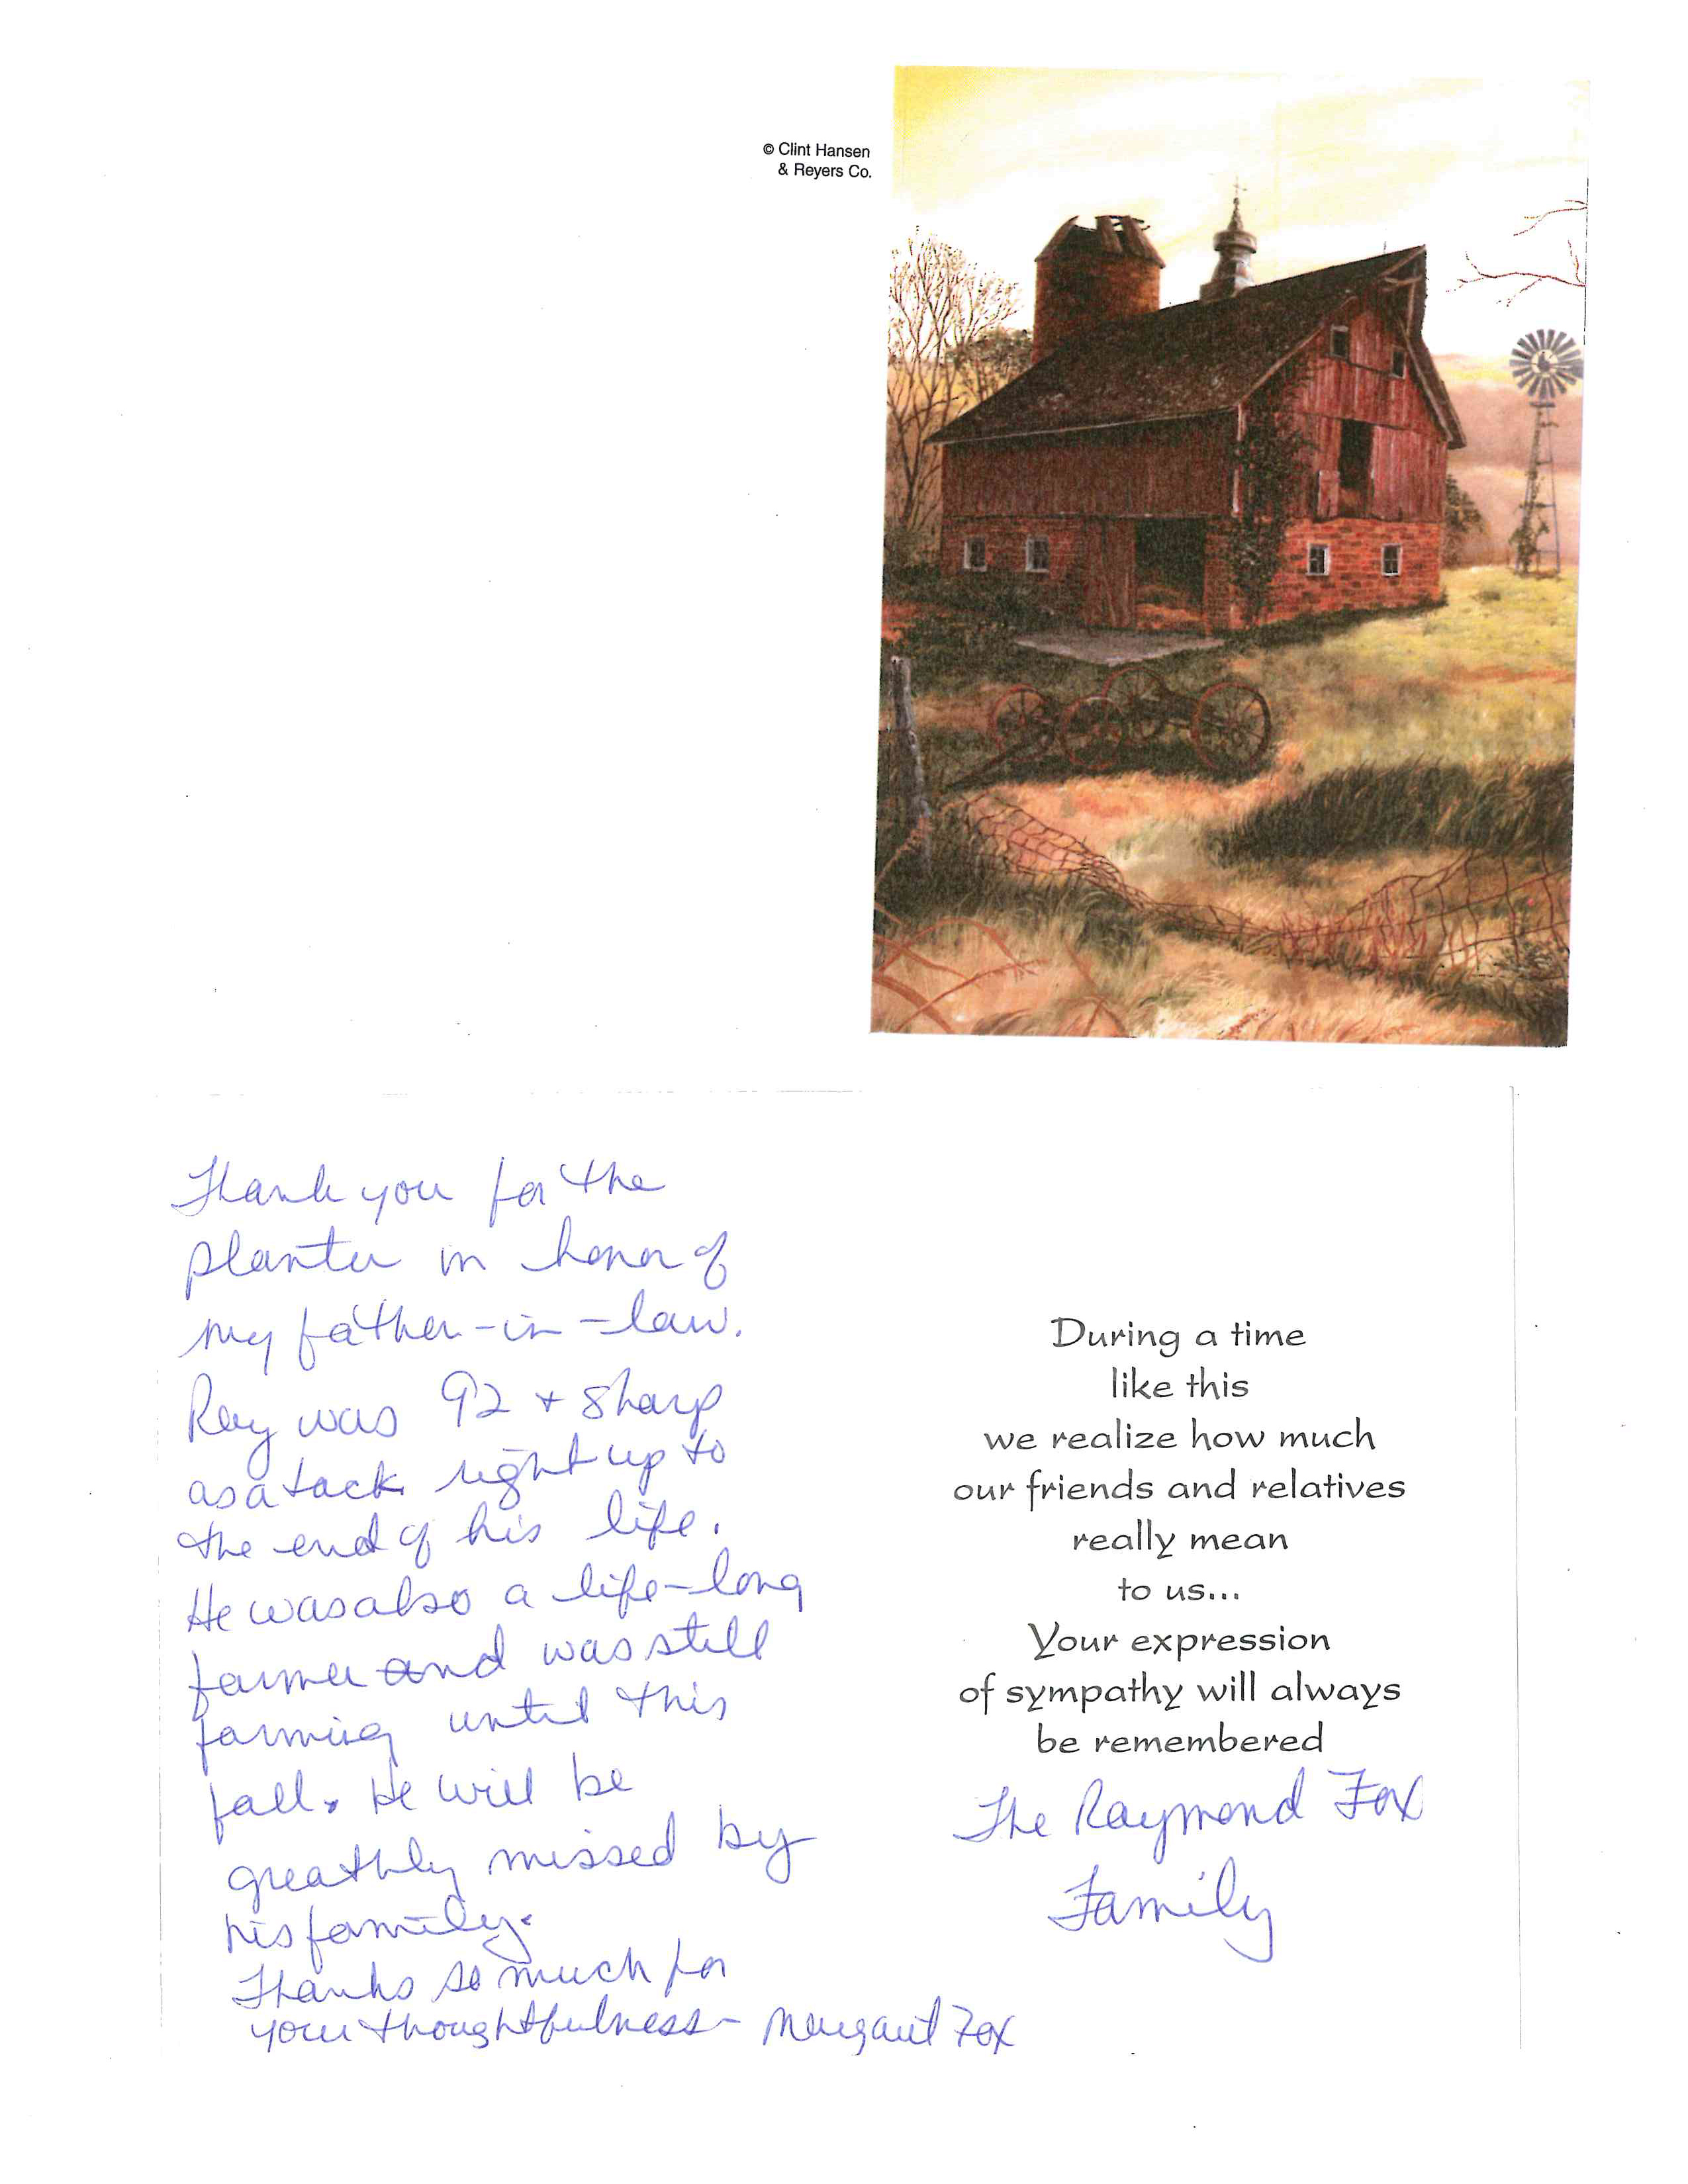 © Clint Hansen
& Reyers Co.
Thank you for the
planter in honor of
my father-in-law.
Ray was 92 + sharp
as a tack right up to
the end of his life.
He was also a life-long
farmer and was still
farming until this
fall. He will be
greathly missed by
his family.
Thanks so much for
your thoughtfulness - Margaret Fox
During a time
like this
we realize how much
our friends and relatives
really mean
to us...
Your expression
of sympathy will always
be remembered
The Raymond Fox
Family